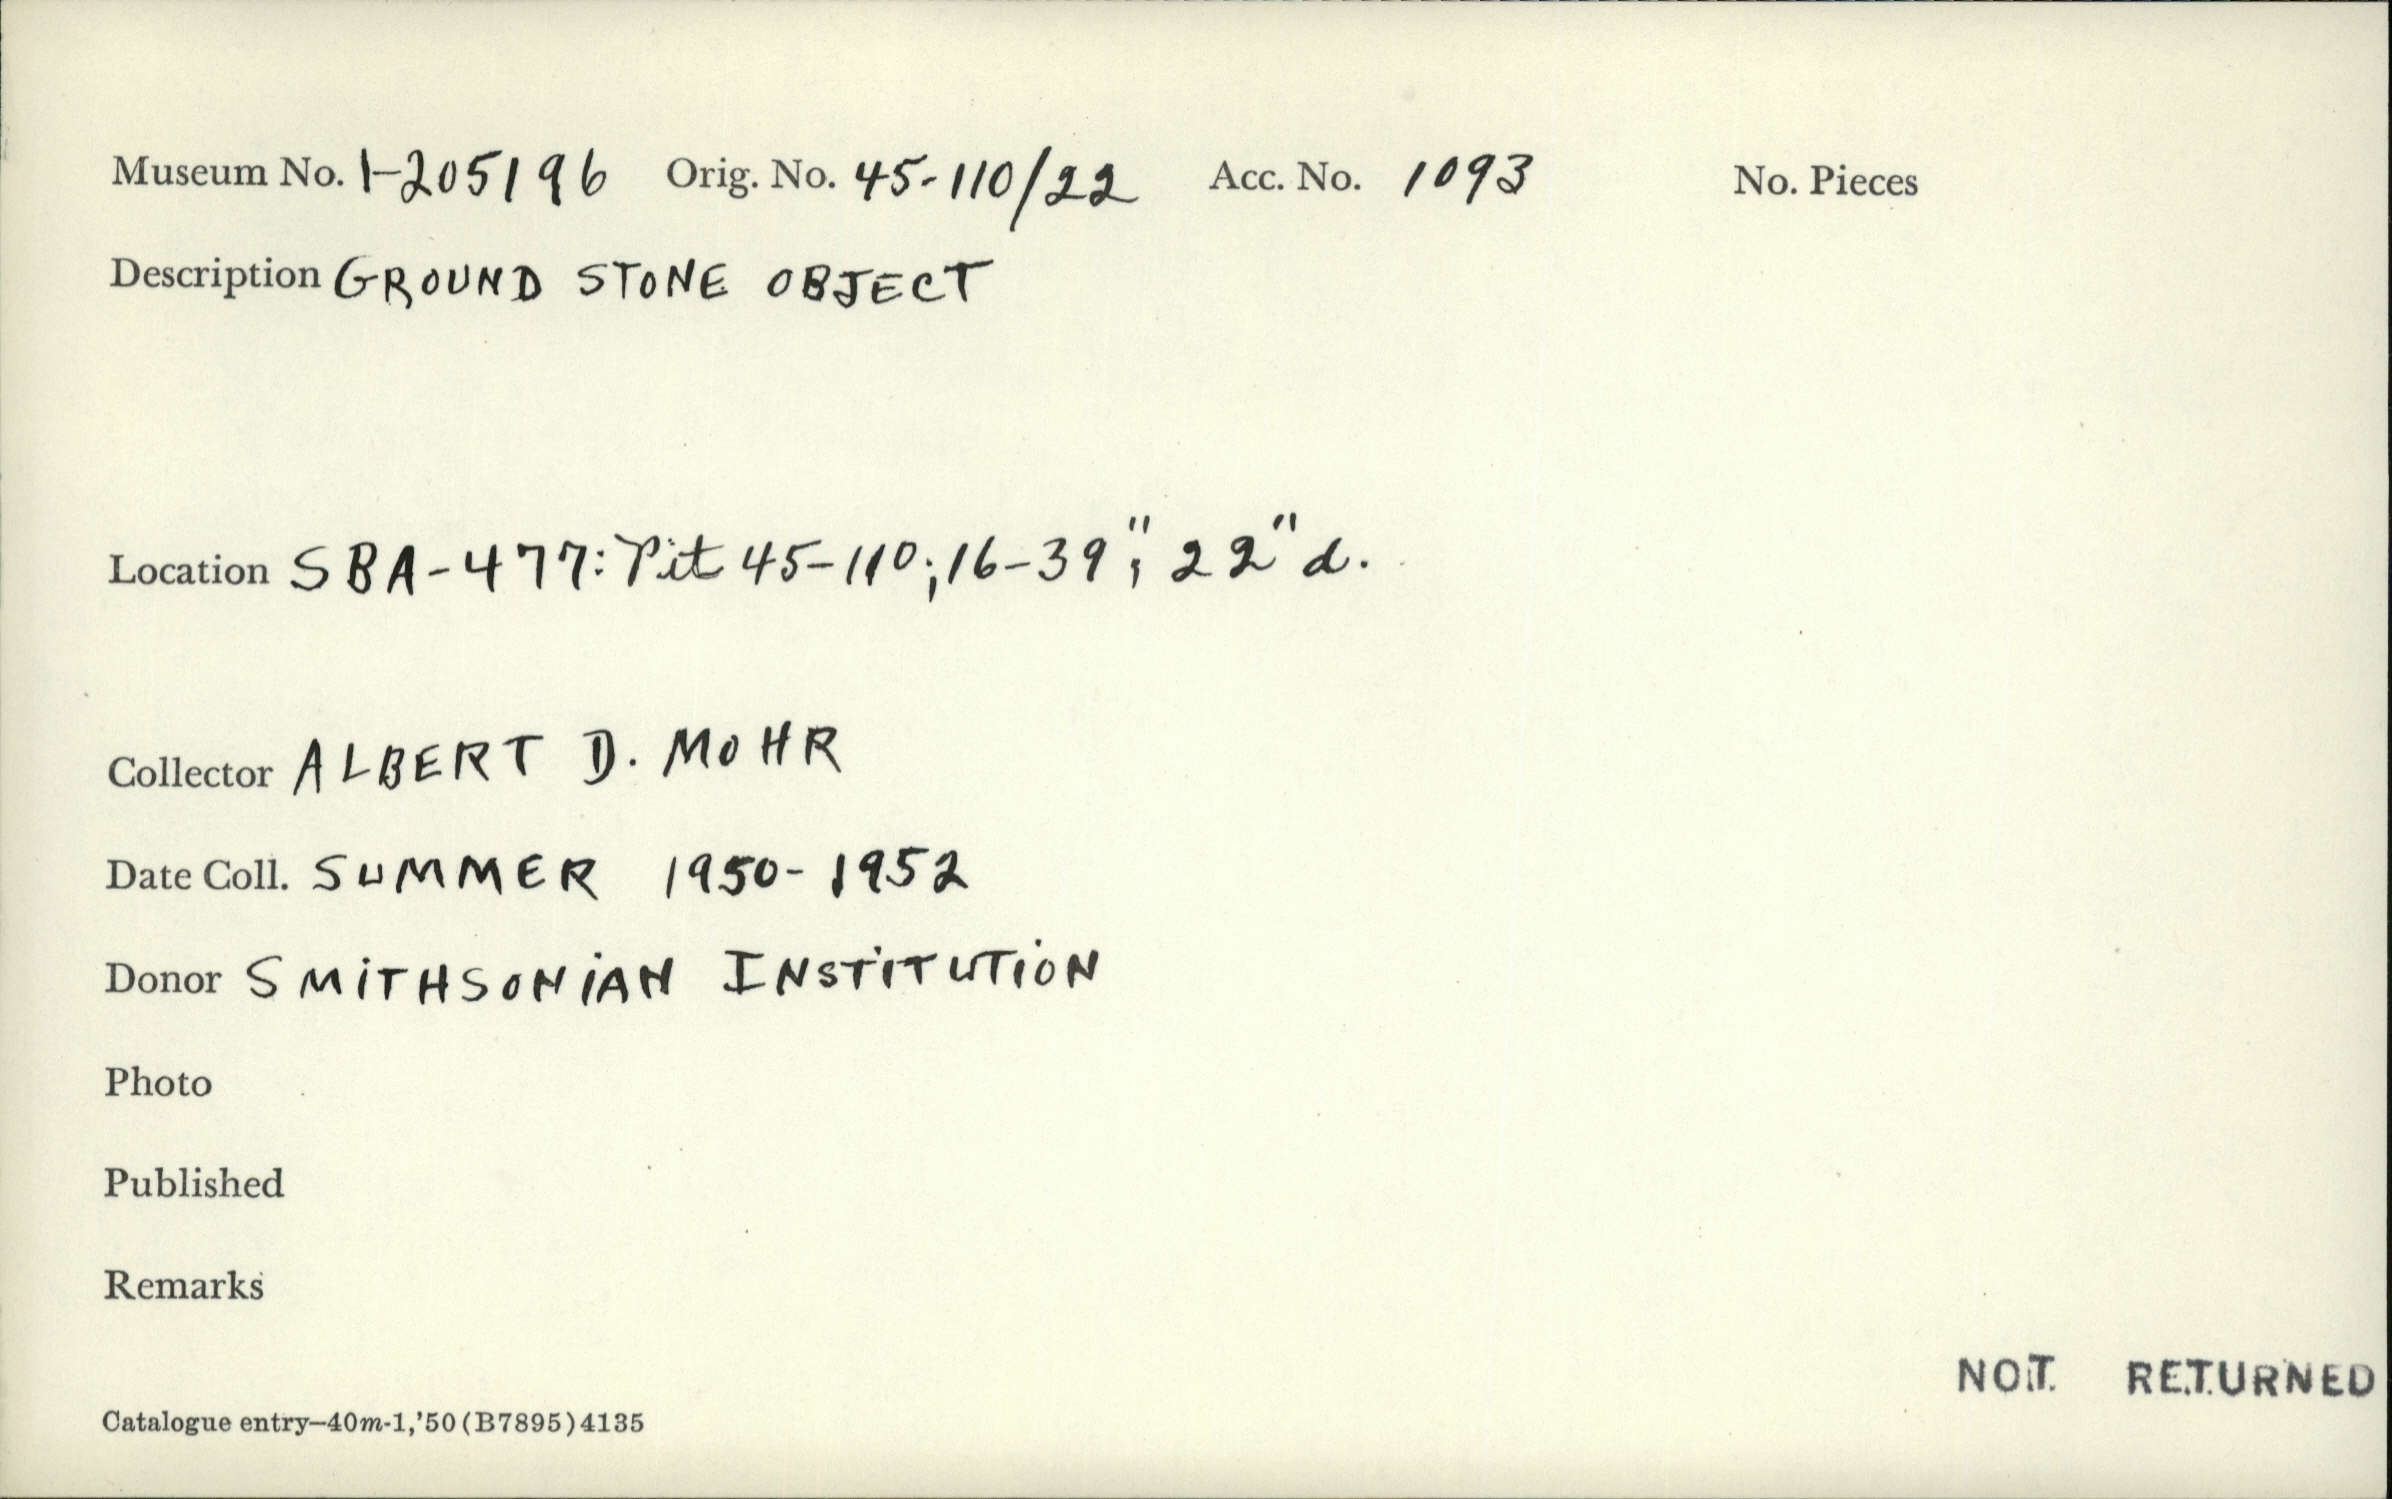 Museum No. 1-205196 Orig. No. 45-110/22 Acc. No. 1093 No. Pieces
Description GROUND STONE OBJECT
Location SBA-477: Pit 45-110; 16-39"; 22" d.
Collector ALBERT D. MOHR
Date Coll. SUMMER 1950-1952
Donor SMITHSONIAN INSTITUTION
Photo
Published
Remarks
NOT RETURNED
Catalogue entry—40m-1,'50(B7895)4135